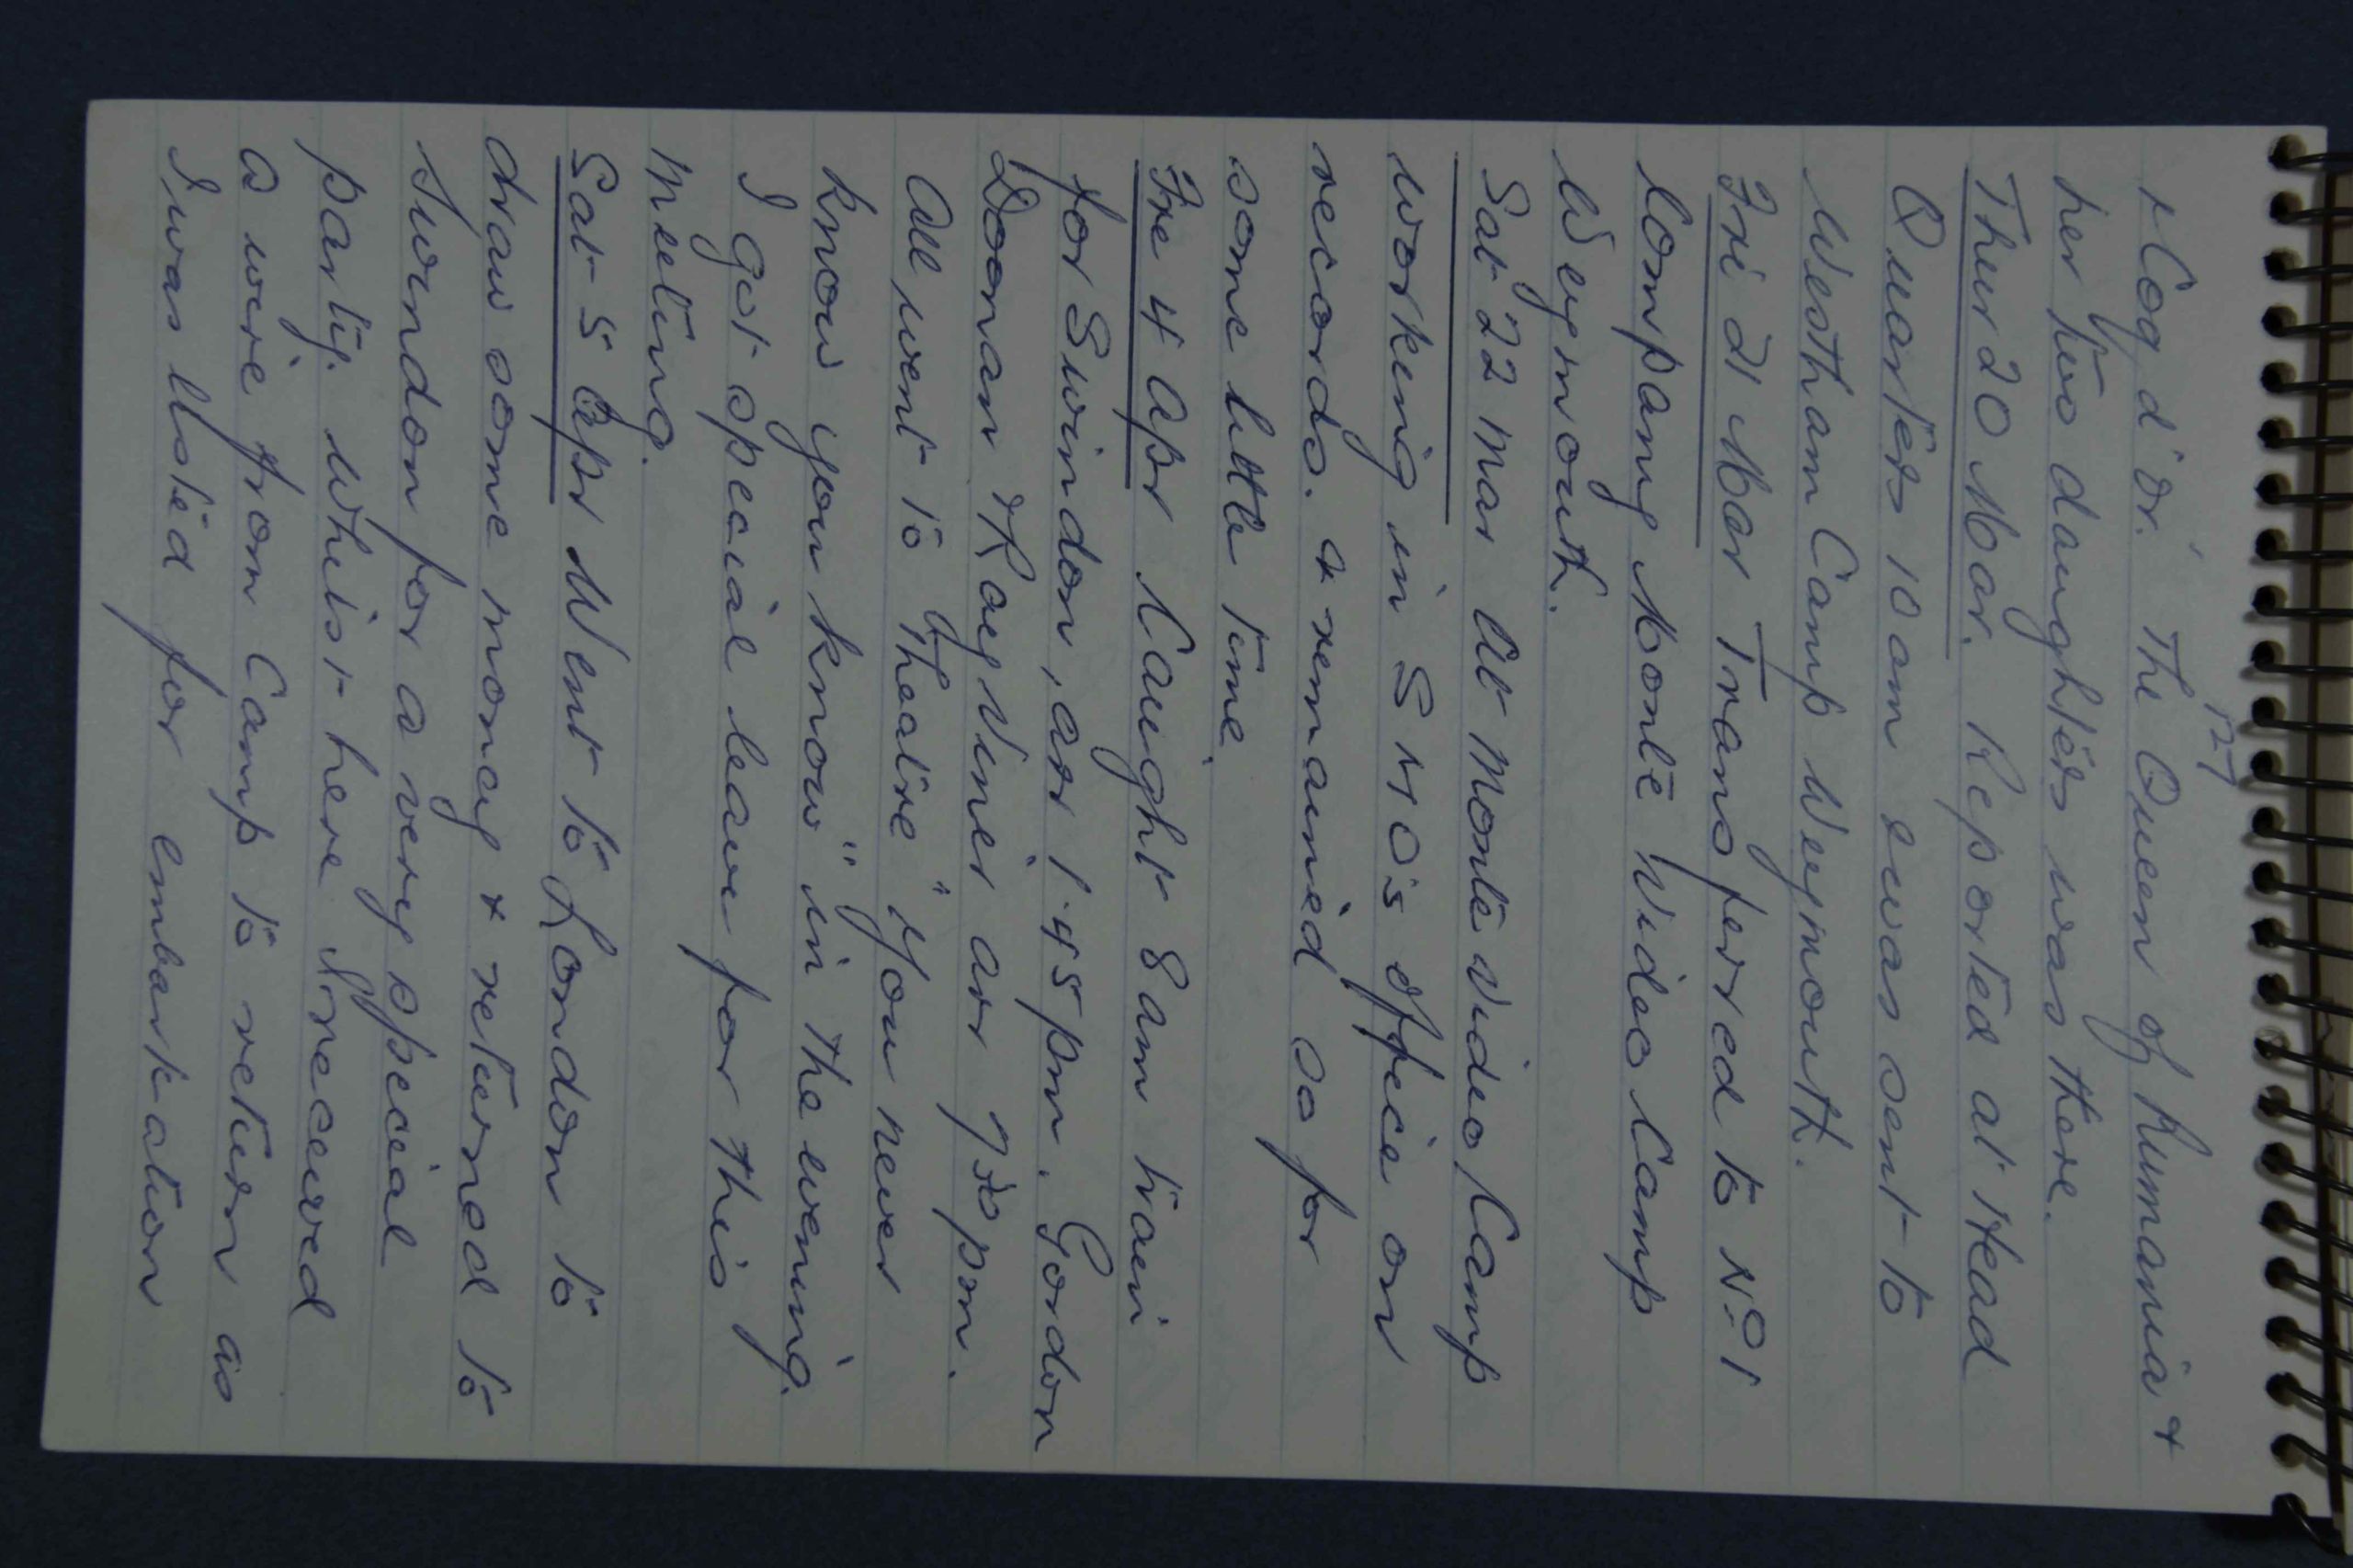 127
+ Cog d'or. The Queen of Rumania +
her two daughters was there.
Thur 20 Mar. Reported at Head
Quarters 10 am & was sent to
Westham Camp Weymouth.
Fri 21 Mar Transferred to No 1
Company Monte Video Camp
Weymouth.
Sat 22 Mar At Monte Video Camp
working in SMO's office on
records. & remained so for
some little time.
Fre 4 Apr Caught 8 am train
for Swindon, arr 1.45 pm. Gordon
Doonan & Ray Viner arr 7.30 pm.
All went to Theatre "You never
know you know" in the evening.
I got special leave for this
meeting.
Sat 5 Apr Went to London to
draw some money & returned to
Swindon for a very special
party. Whilst here I received
a wire from Camp to return as
I was listed for embarkation